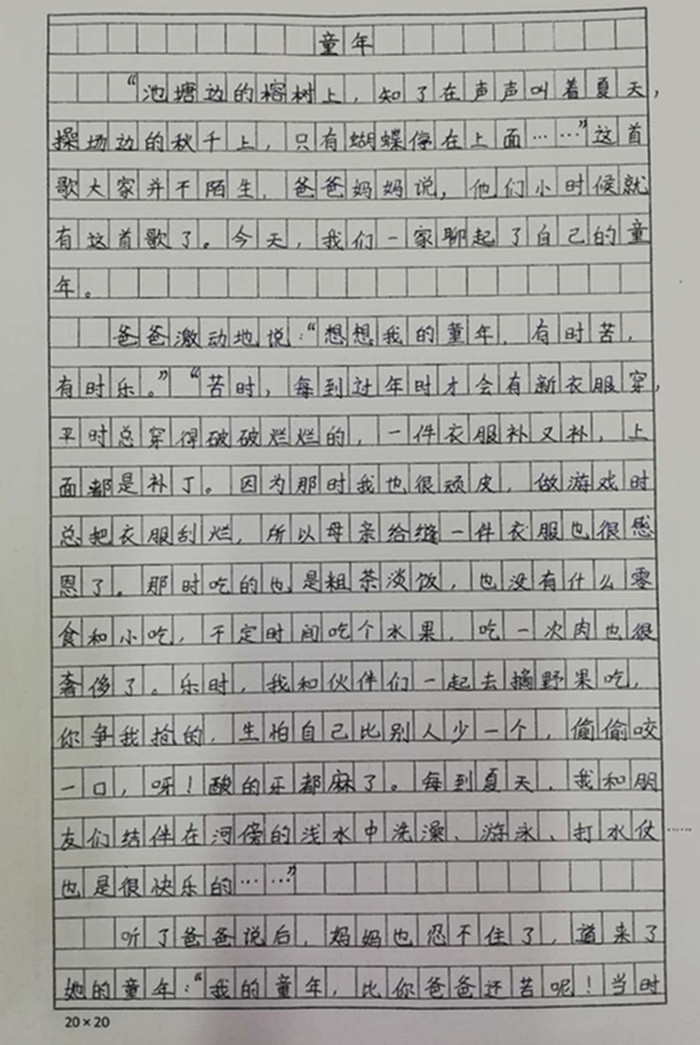 童年
“池塘边的榕树上，知了在声声叫着夏天，
操场边的秋千上，只有蝴蝶停在上面……”这首
歌大家并不陌生，爸爸妈妈说，他们小时候就
有这首歌了。今天，我们一家聊起了自己的童
年。
爸爸激动地说：“想想我的童年，有时苦，
有时乐。”“苦时，每到过年时才会有新衣服穿，
平时总穿得破破烂烂的，一件衣服补又补，上
面都是补丁。因为那时我也很顽皮，做游戏时
总把衣服刮烂，所以母亲给缝一件衣服也很感
恩了。那时吃的也是粗茶淡饭，也没有什么零
食和小吃，不定时间吃个水果，吃一次肉也很
奢侈了。乐时，我和伙伴们一起去摘野果吃，
你争我抢的，生怕自己比别人少一个，偷偷咬
一口，呀！酸的牙都麻了。每到夏天，我和朋
友们结伴在河傍的浅水中洗澡、游泳、打水仗……
也是很快乐的……”
听了爸爸说后，妈妈也忍不住了，道来了
她的童年：“我的童年，比你爸爸还苦呢！当时
20×20